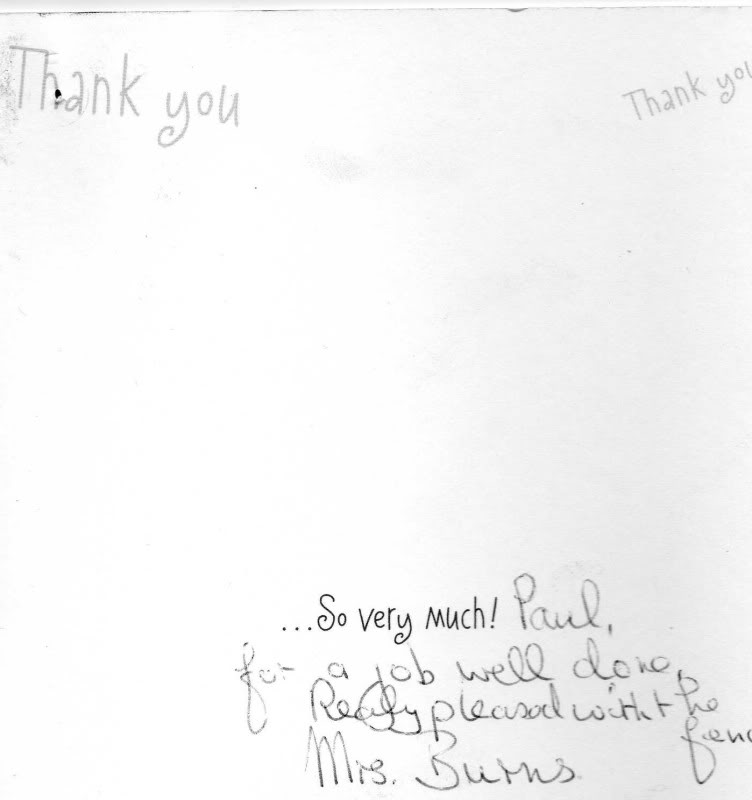 Thank you
Thank you
...So very much! Paul,
for a job well done,
Really pleased with the
fenc
Mrs. Burns